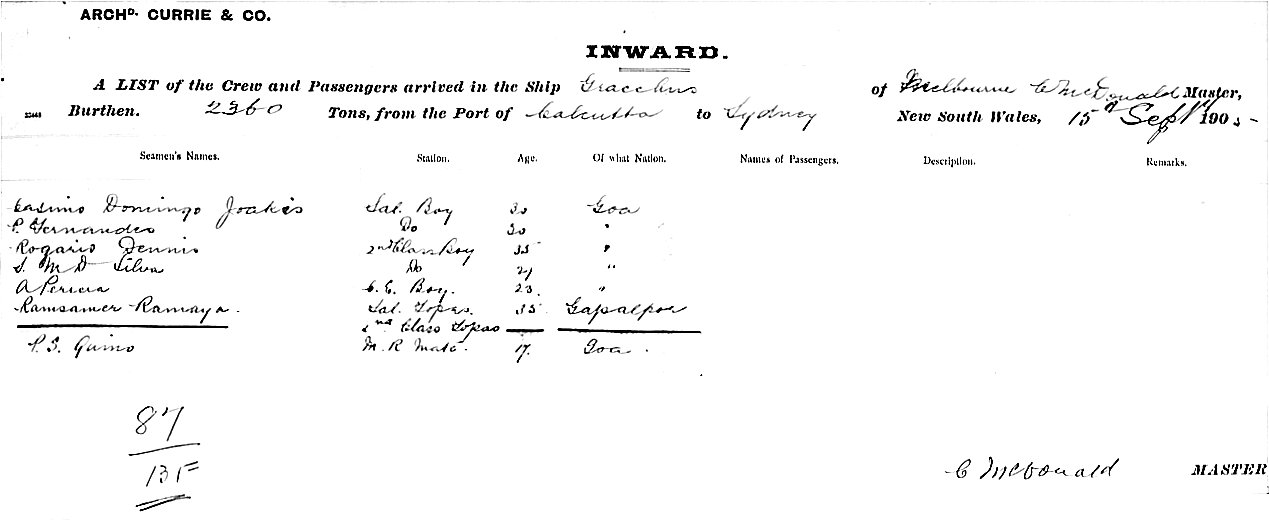 ARCHD. CURRIE & CO.
INWARD.
A LIST of the Crew and Passengers arrived in the Ship Gracchus of Melbourne C McDonald Master,
Burthen. 2360 Tons, from the Port of Calcutta to Sydney New South Wales, 15th Sept 1905
Seamen's Names. Station. Age. Of what Nation. Names of Passengers. Description. Remarks.
Casimo Domingo Joakis Sal. Boy 30 Goa
P. Fernandes Do 30 "
Rogario Dennis 2nd Class Boy 35 "
S. M D Silva Do 21 "
A Pereira C. E. Boy. 23. "
Ramsamer Ramaya. Sal. Topas. 35 Gapalpor
2nd Class Topas
P. S. Guino M. R Mate. 17. Goa.
87
135
C McDonald MASTER